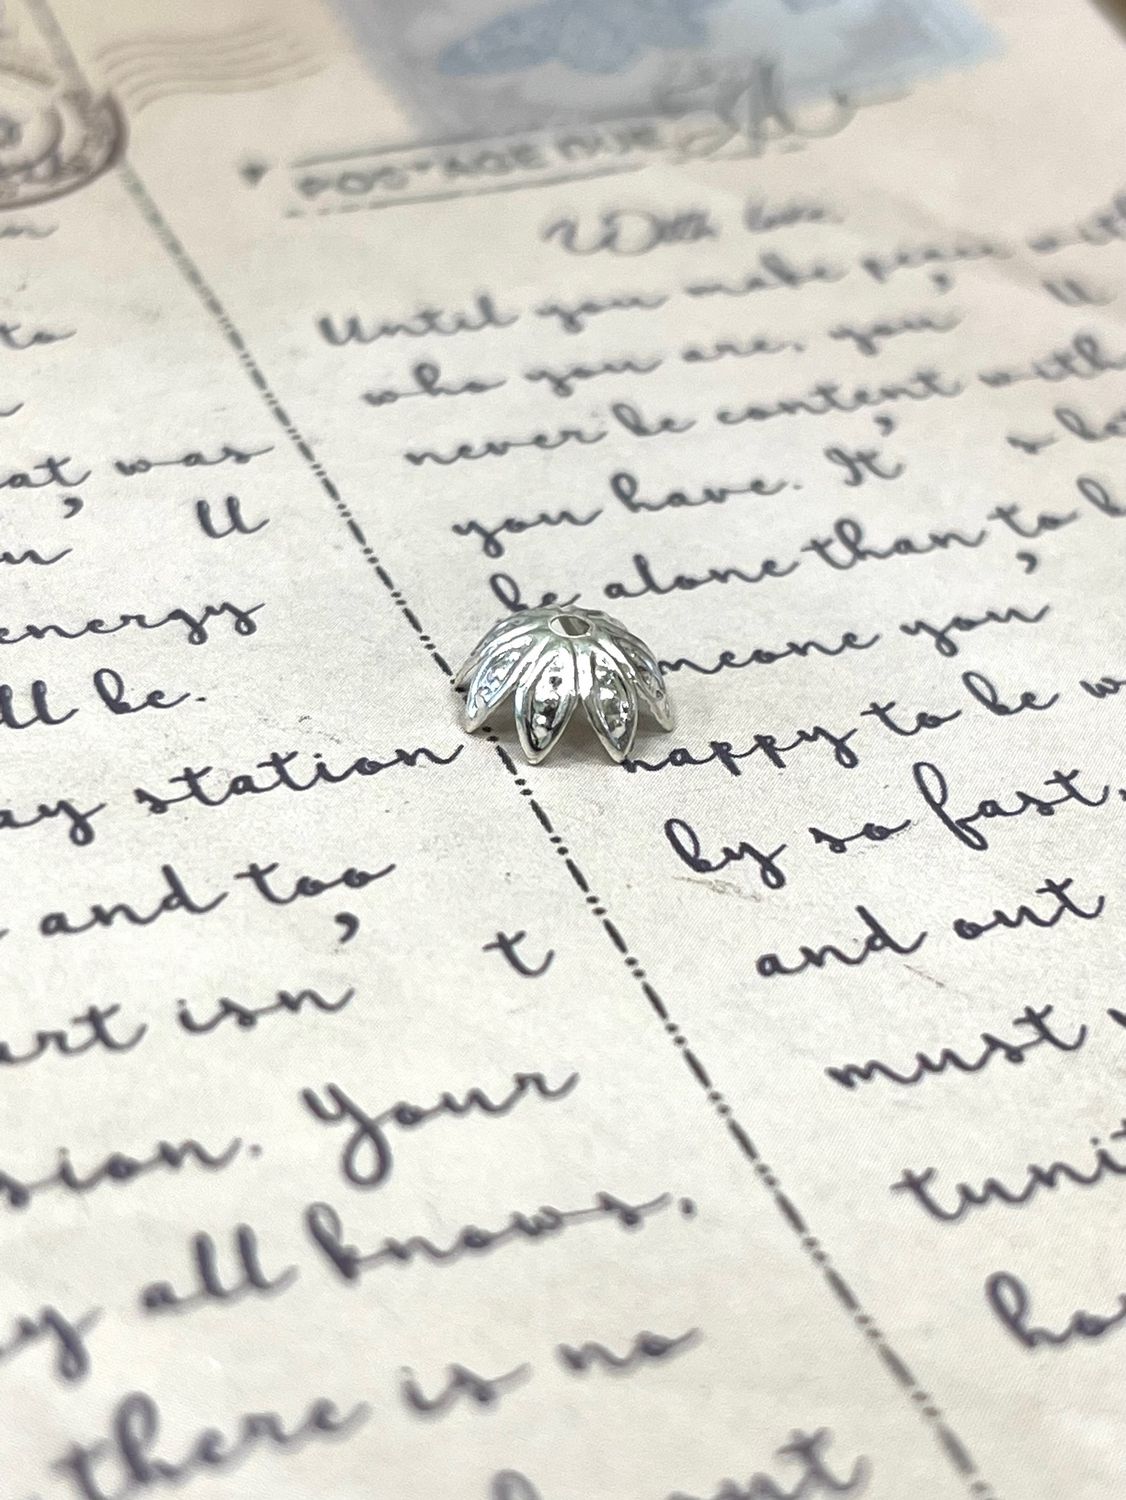 POSTAGE DUE
With love
Until you make peace with
who you are, you' ll
never be content with
you have. It' s bet
be alone than to b
meone you'
happy to be w
by so fast,
and out
must
tunit
ho
to
at was
' ll
energy
ll be.
ay station
and too
art isn' t
sion. Your
y all knows,
there is no